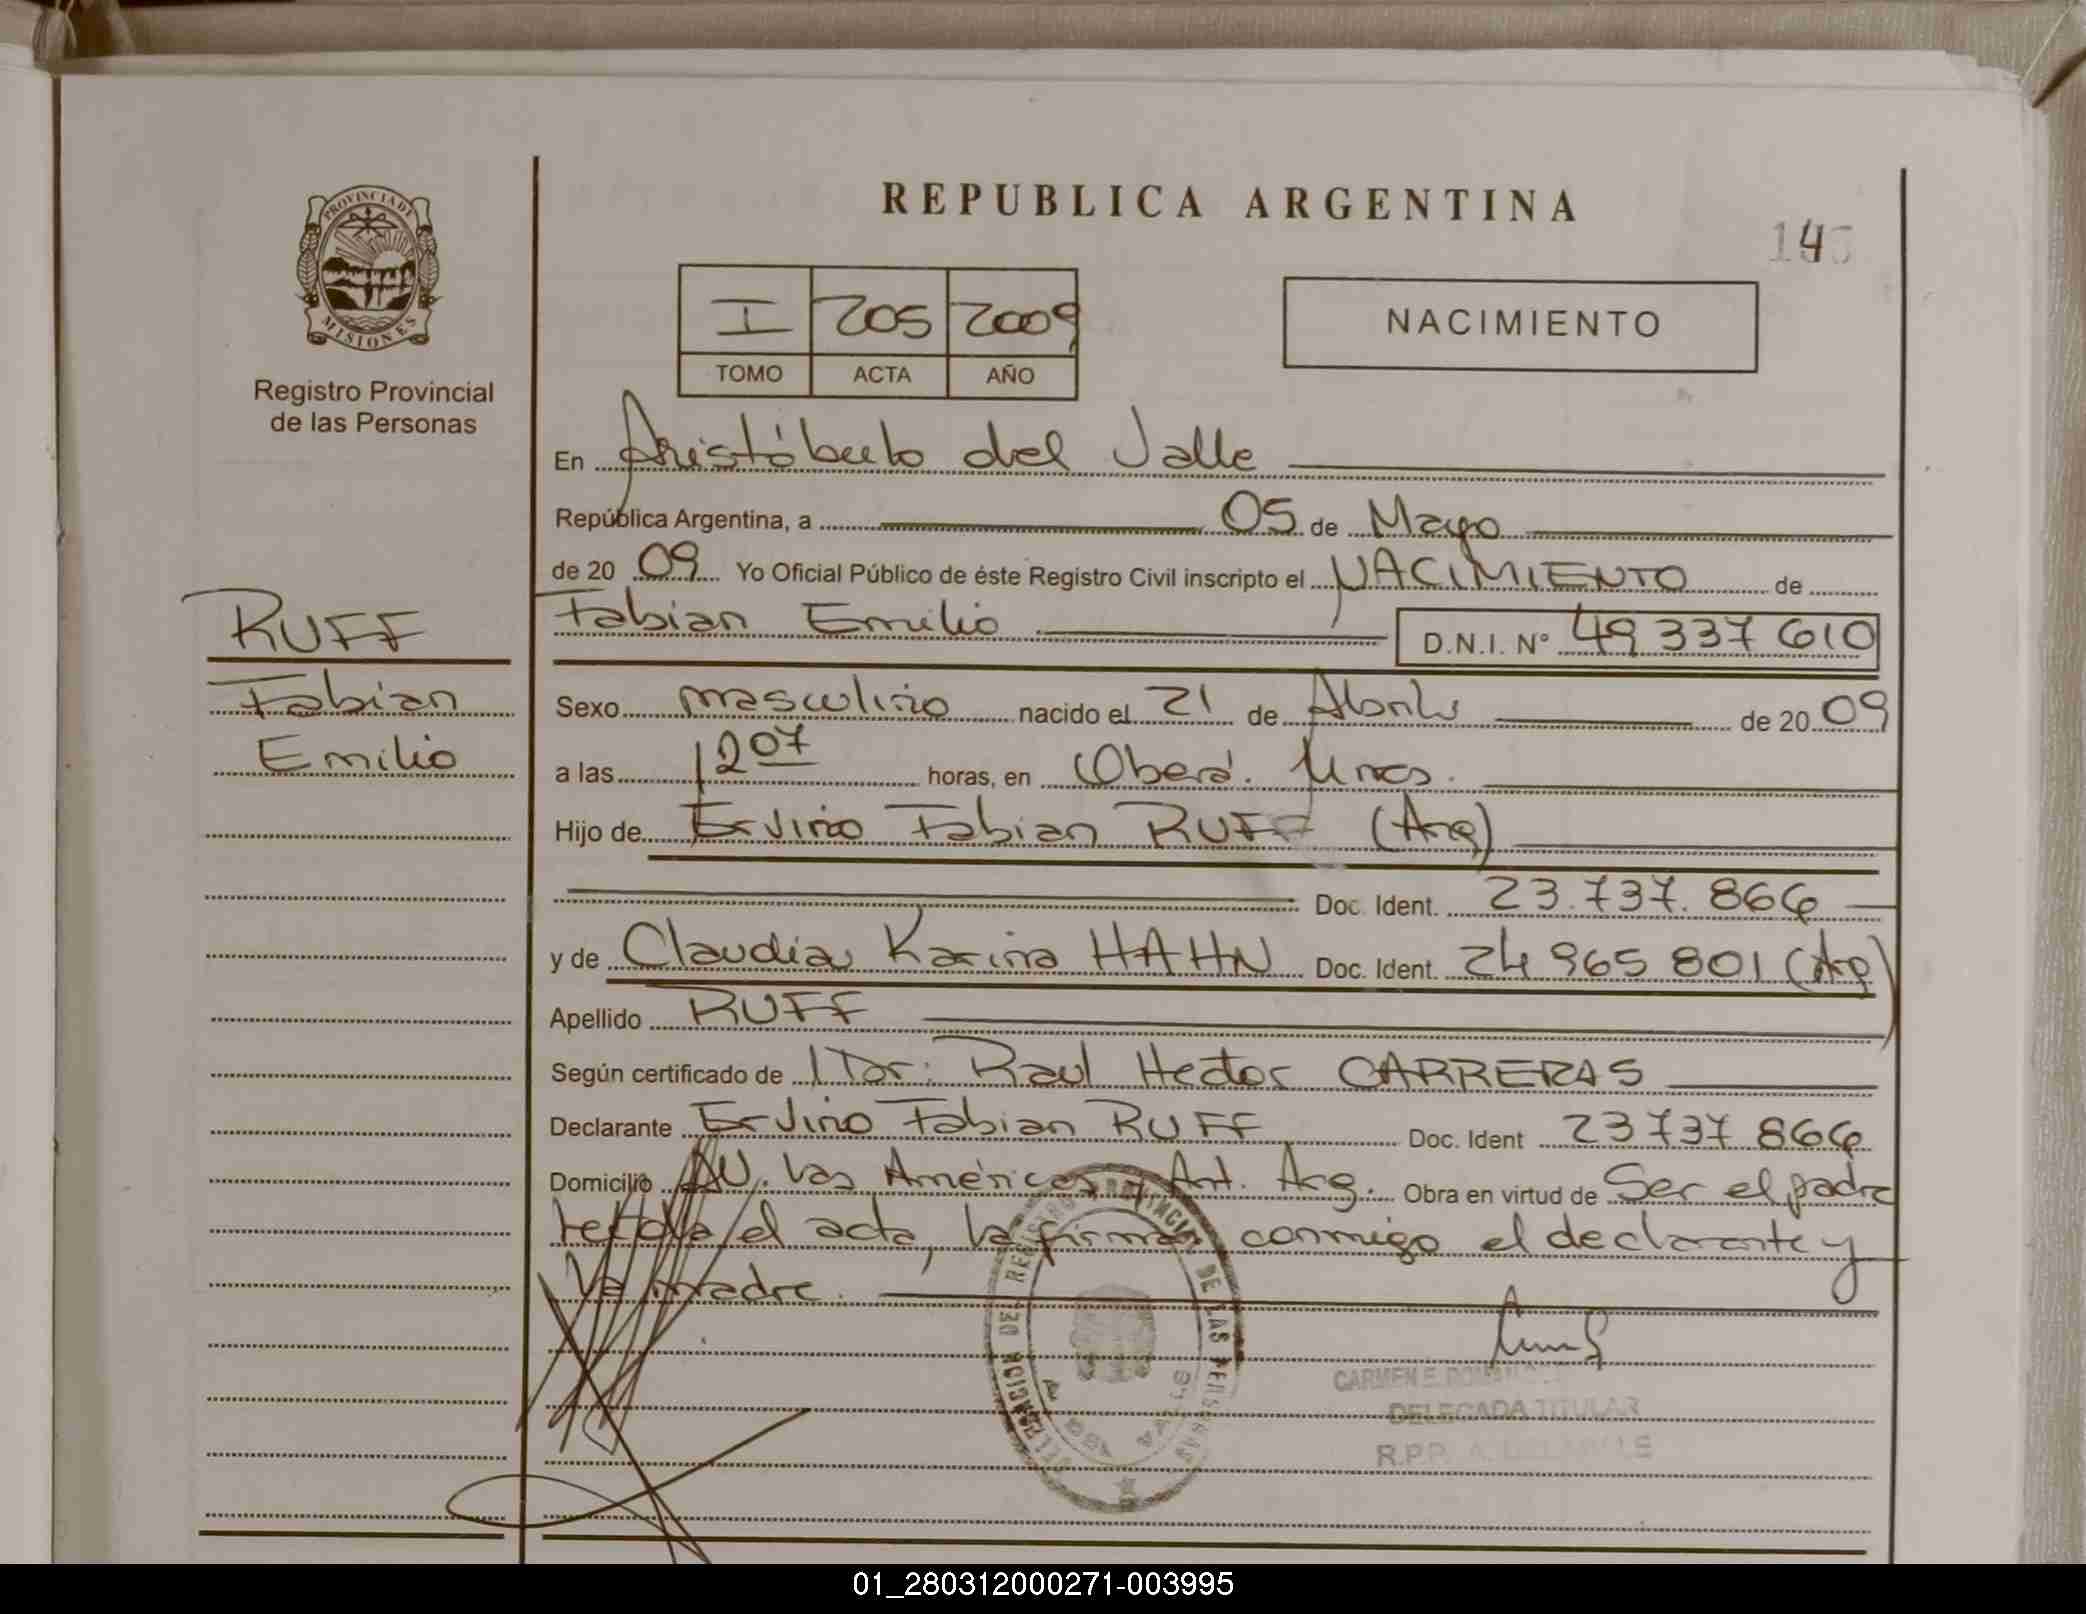 REPUBLICA ARGENTINA
PROVINCIA DE
MISIONES
Registro Provincial
de las Personas
I 205 2009
TOMO ACTA AÑO
NACIMIENTO
En Aristóbulo del Valle
República Argentina, a 05 de Mayo
de 20 09 Yo Oficial Público de éste Registro Civil inscripto el NACIMIENTO de
Fabian Emilio D.N.I. N° 49 337 610
RUFF
Fabian
Emilio
Sexo masculino nacido el 21 de Abril de 20 09
a las 1207 horas, en Oberá. Mnes.
Hijo de Ervino Fabian RUFF (Arg)
Doc. Ident. 23.737.866
y de Claudia Karina HAHN Doc. Ident. 24 965 801 (Arg)
Apellido RUFF
Según certificado de Dr. Raul Hector CARRERAS
Declarante Ervino Fabian RUFF Doc. Ident 23 737 866
Domicilio AV. Las Américas y Ant. Arg. Obra en virtud de Ser el padre
leída el acta, la firman conmigo el declarante y
la madre.
REGISTRO PROVINCIAL DE LAS PERSONAS
CARMEN E.
DELEGADA TITULAR
R.P.P. A. DEL VALLE
01_280312000271-003995